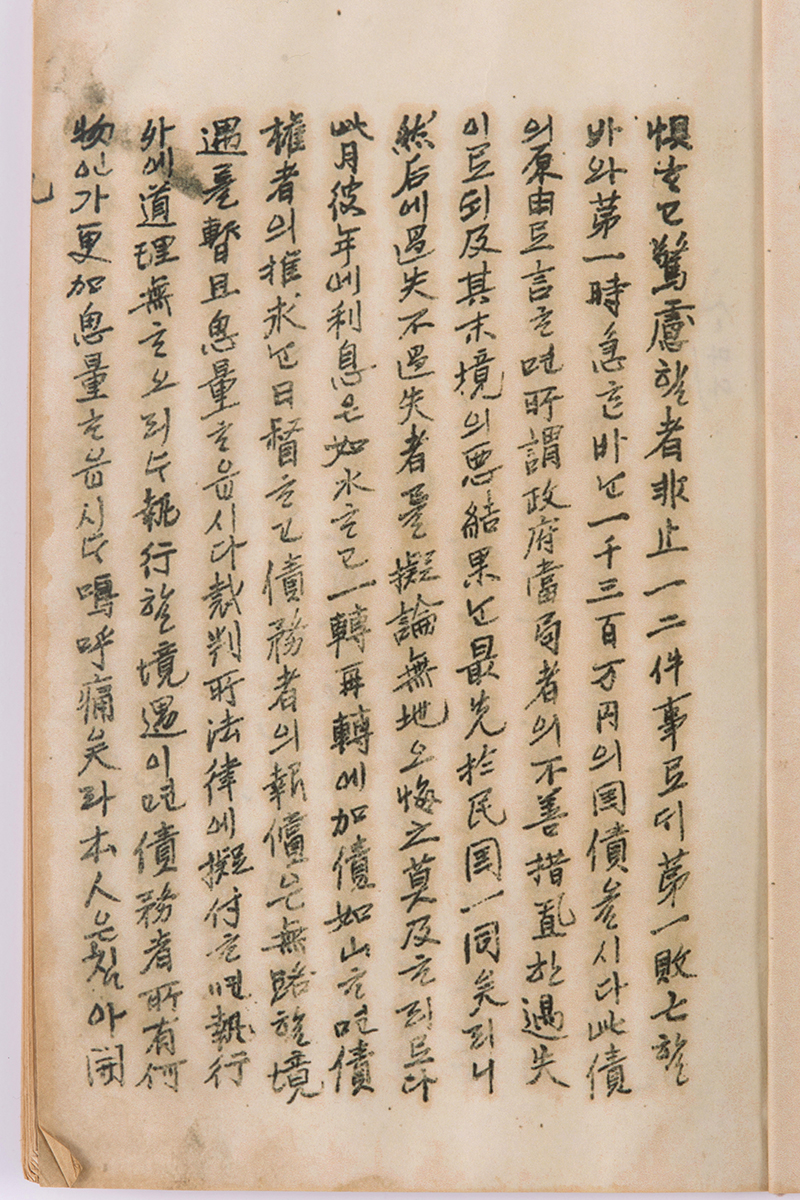 懼ᄒᆞ고 驚慮ᄒᆞᆯ 者 非止一二件事로ᄃᆡ 第一 敗亡ᄒᆞᆯ
바와 第一 時急ᄒᆞᆫ 바ᄂᆞᆫ 一千三百万円의 国債올시다 此債
의 原由로 言ᄒᆞ면 所謂 政府當局者의 不善措亂ᄒᆞᆫ 過失
이로되 及其末境의 悪結果ᄂᆞᆫ 最先於民国一同矣리니
然后에 過失不過失者를 擬論無地오 悔之莫及ᄒᆞ리로다
此月彼年에 利息은 如水ᄒᆞ고 一轉再轉에 加債如山ᄒᆞ면 債
權者의 推求ᄂᆞᆫ 日督ᄒᆞ고 債務者의 報償은 無路ᄒᆞᆯ 境
遇를 暫且思量ᄒᆞ옵시다 裁判所 法律에 擬付ᄒᆞ면 執行
外에 道理無ᄒᆞ오리ᄂᆞ 執行ᄒᆞᆯ 境遇이면 債務者 所有 何
物인가 更加思量ᄒᆞ옵시ᄂᆞ 嗚呼痛矣라 本人은 참아 開